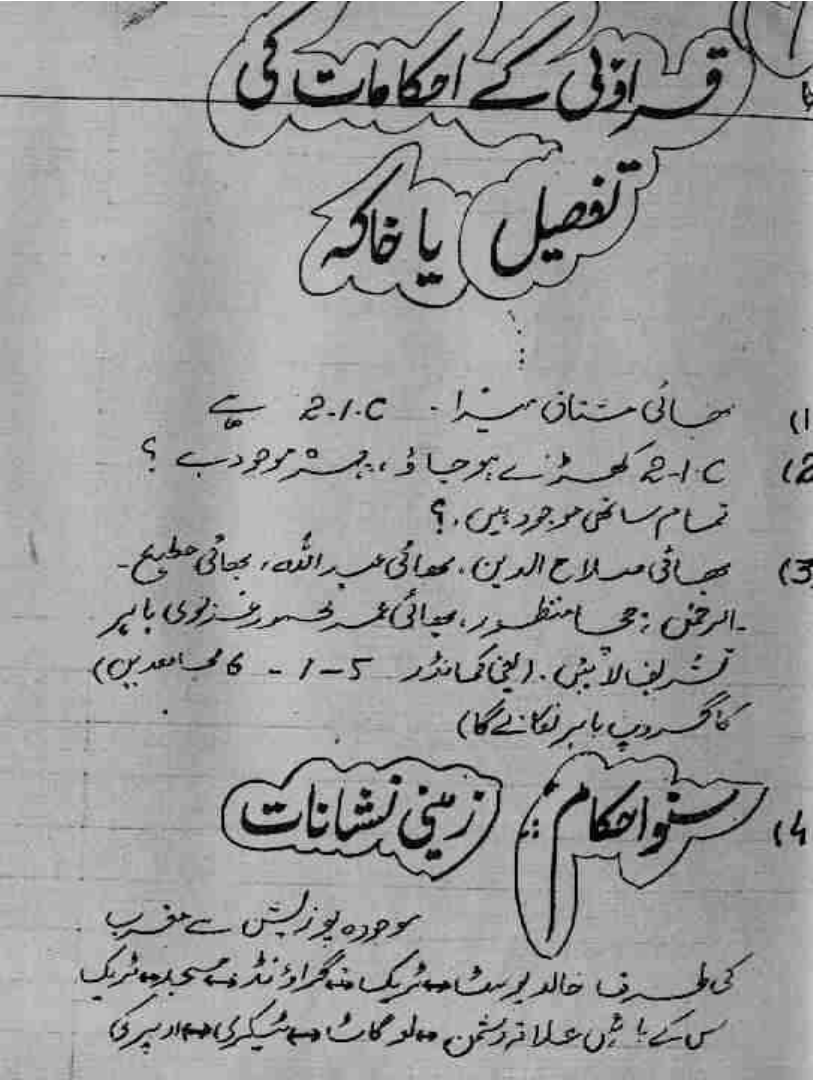 قراؤلی کے احکامات کی
تفصیل یا خاکہ
(1 بھائی مشتاق میرا۔ 2.I.C ہے
(2 2-I.C کھڑے ہو جاؤ، ہسٹر موجود ہے ؟
تمام ساتھی موجود ہیں.؟
(3 بھائی صلاح الدین، بھائی عبداللہ، بھائی مطیع-
-الرحمٰن منظور، بھائی محمود غزنوی باہر
تشریف لائیں. (یعنی کمانڈر 5 - 1 - 6 مجاہدین)
کا گروپ باہر نکالے گا)
(4 سنو احکام :: زمینی نشانات
موجودہ پوزیشن سے مغرب
کی طرف خالد پوسٹ ↔ ٹریک ↔ گراؤنڈ ↔ مسجد ↔ ٹریک
س کے بائیں علاقہ دشمن ↔ لو گاٹ ↔ ٹیکری ↔ اوپر کی